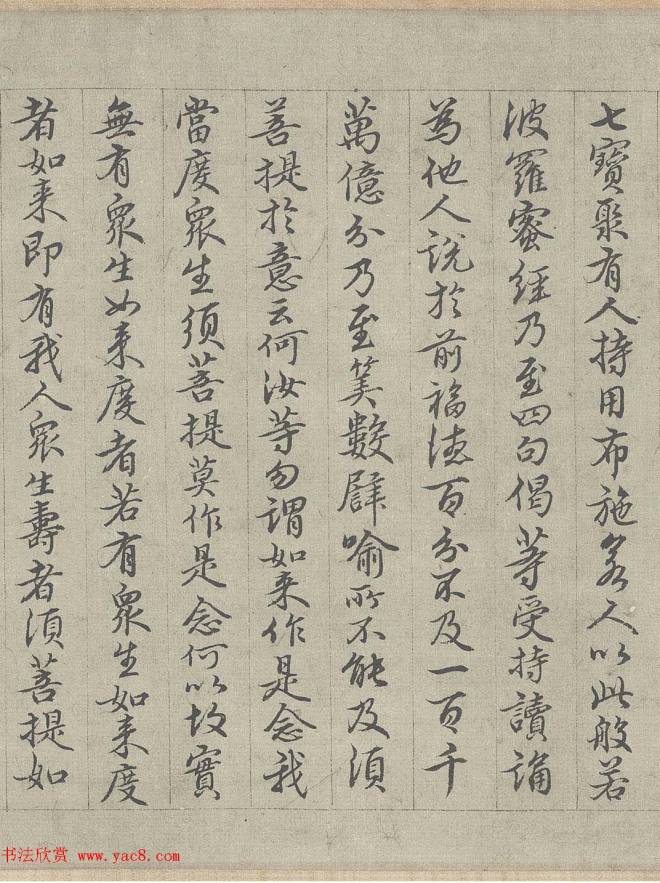 七寶聚有人持用布施若人以此般若
波羅蜜經乃至四句偈等受持讀誦
為他人説於前福德百分不及一百千
萬億分乃至筭數譬喻所不能及須
菩提於意云何汝等勿謂如来作是念我
當度眾生須菩提莫作是念何以故實
無有眾生如来度者若有眾生如来度
者如来即有我人眾生壽者須菩提如
书法欣赏 www.yac8.com